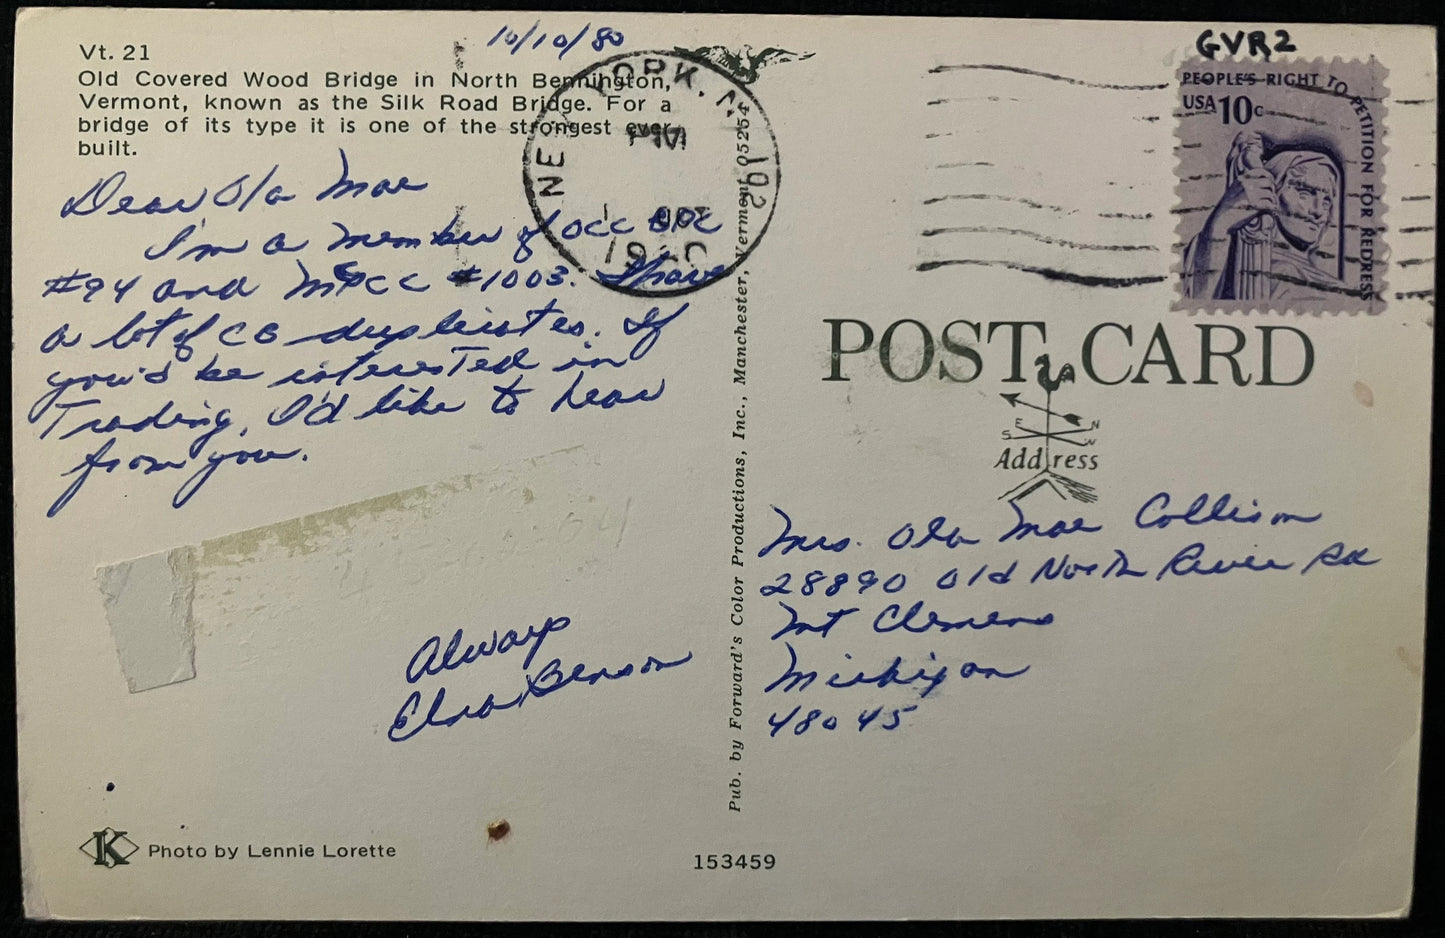 Vt. 21
Old Covered Wood Bridge in North Bennington,
Vermont, known as the Silk Road Bridge. For a
bridge of its type it is one of the strongest ever
built.
10/10/80
Dear Ola Mae
I'm a member of OCC
#94 and MPCC #1003. I have
a lot of CB duplicates. If
you'd be interested in
Trading, I'd like to hear
from you.
Always
Benson
K Photo by Lennie Lorette
153459
Pub. by Forward's Color Productions, Inc., Manchester, Vermont 05254
NEW YORK, N
102
PM
GVR2
PEOPLE'S RIGHT TO PETITION FOR REDRESS
USA 10c
POST CARD
S E N W
Address
Mrs. Ola Mae Collison
28890 Old North River Rd
Mt Clemens
Michigan
48045